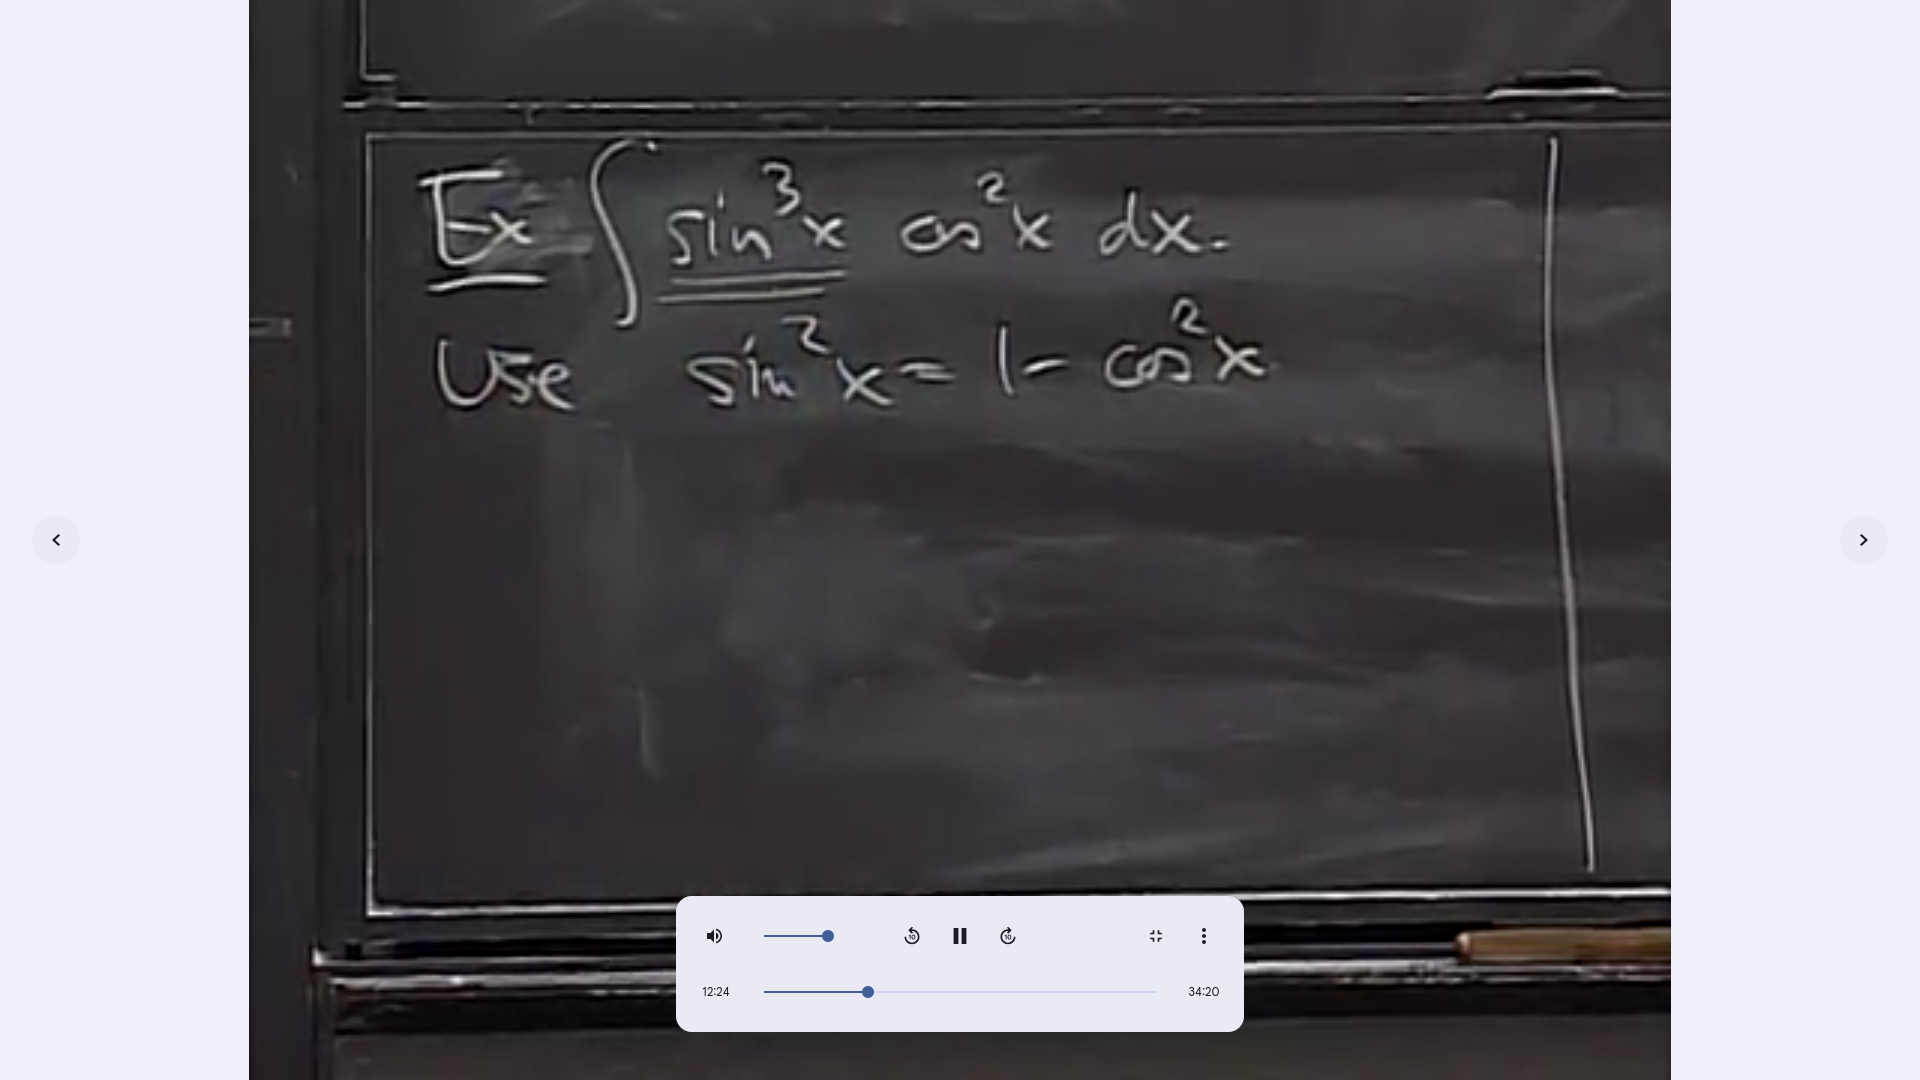 Ex ∫ sin³x cos²x dx.
Use sin²x = 1 - cos²x
12:24
34:20